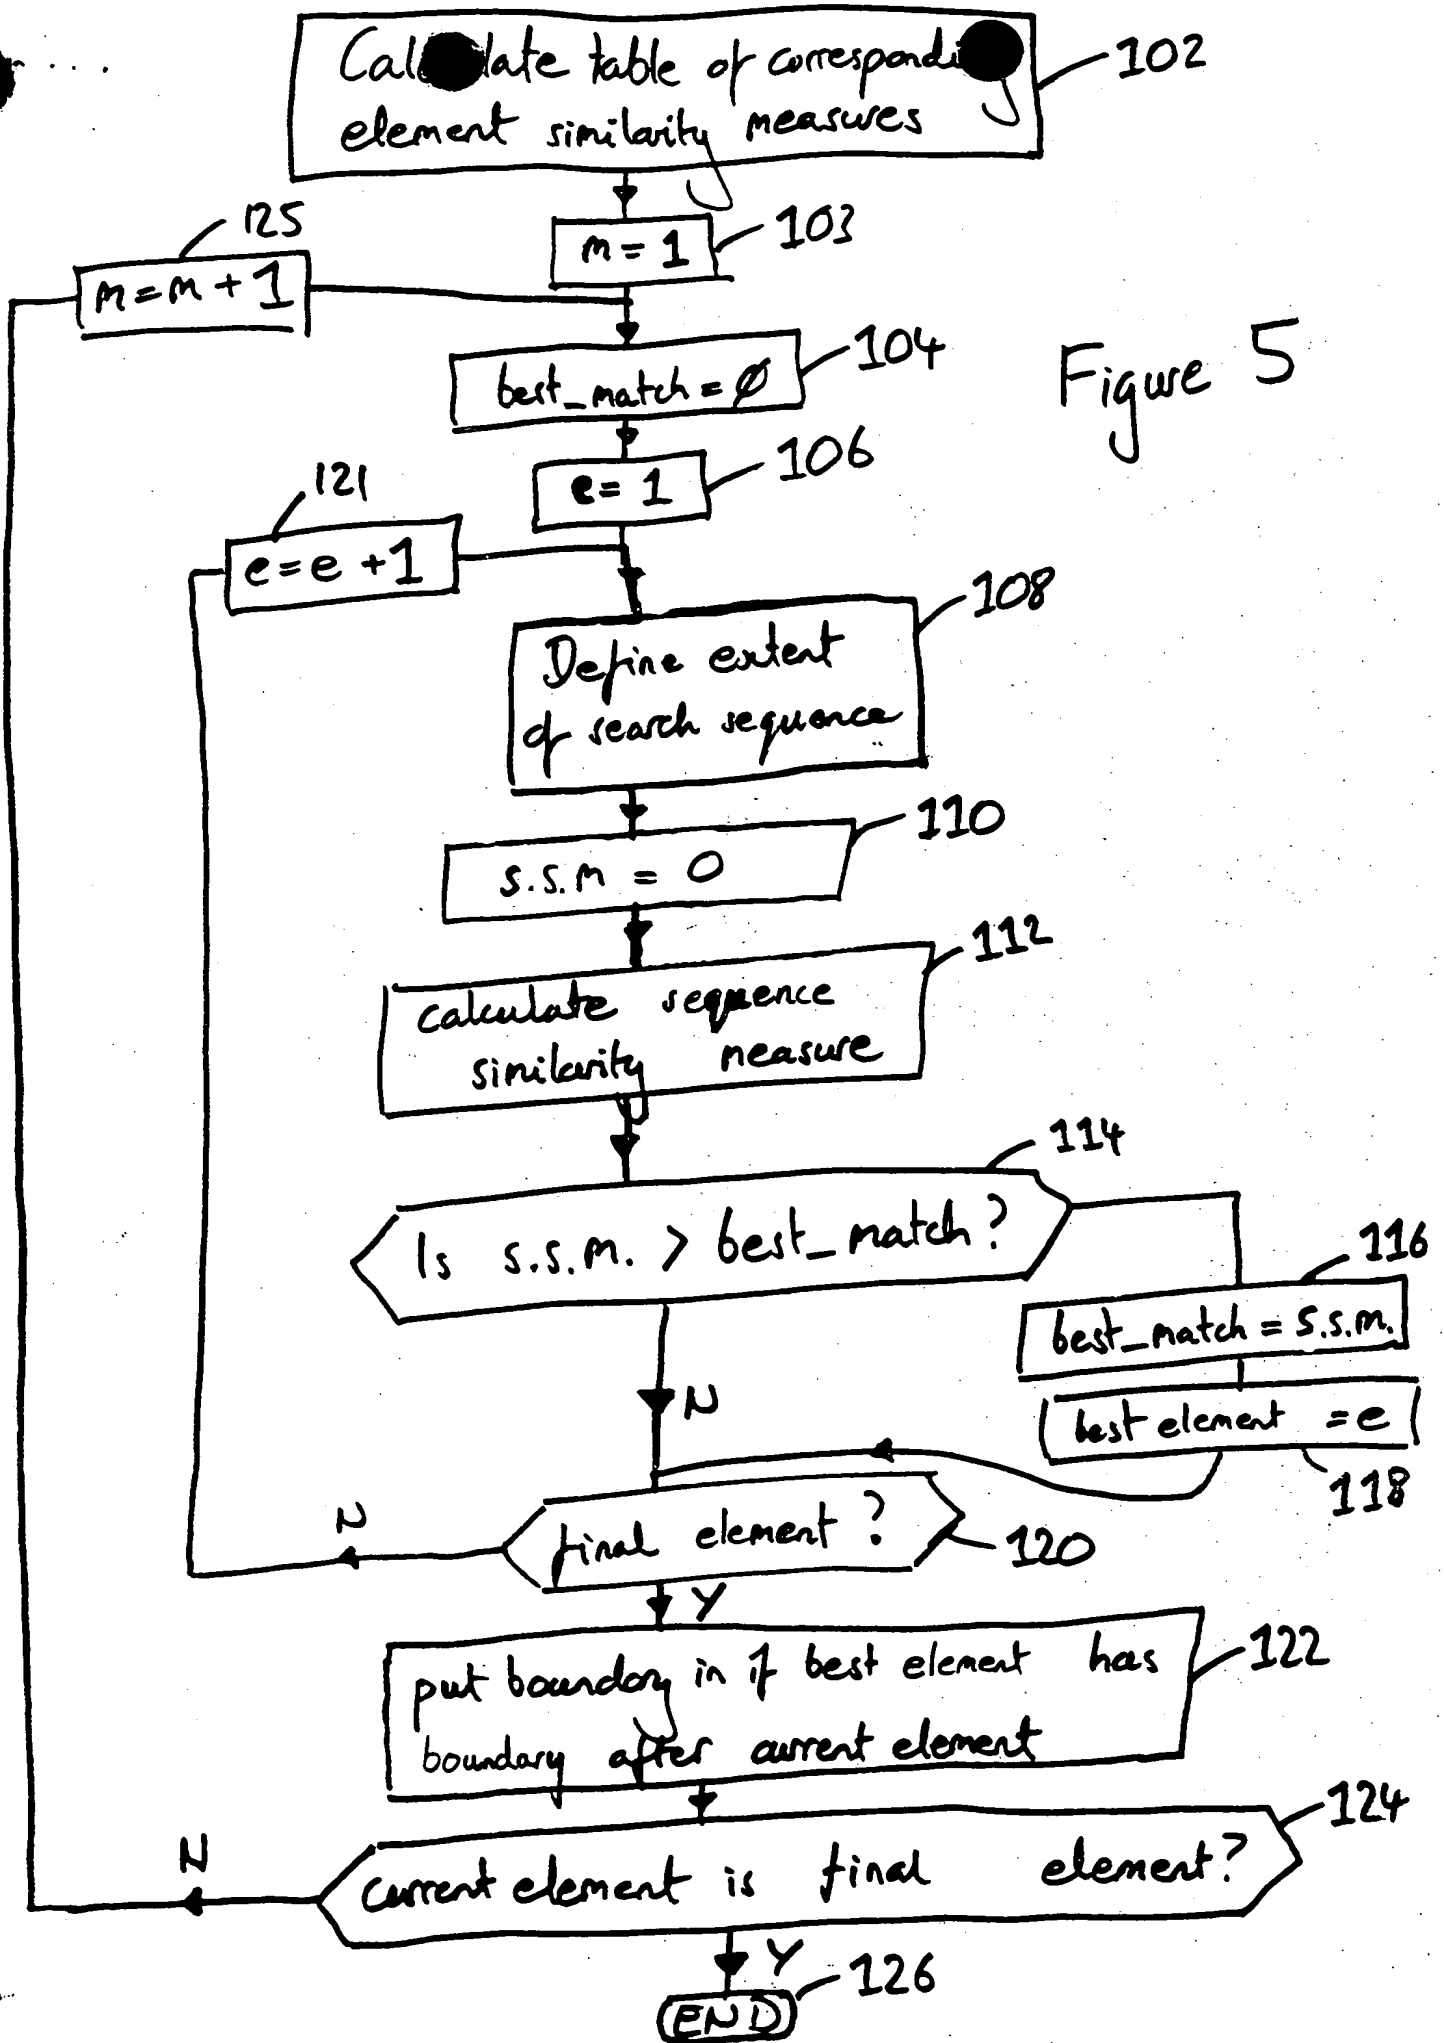 Calculate table of corresponding
102
element similarity measures
125
m = 1
103
m = m + 1
best_match = Ø
104
Figure 5
e = 1
106
121
e = e + 1
108
Define extent
of search sequence
110
s.s.m = 0
112
calculate sequence
similarity measure
114
Is s.s.m. > best_match?
116
best_match = s.s.m.
N
best element = e
118
final element?
120
N
Y
put boundary in if best element has
122
boundary after current element
124
N
current element is final element?
Y
126
END